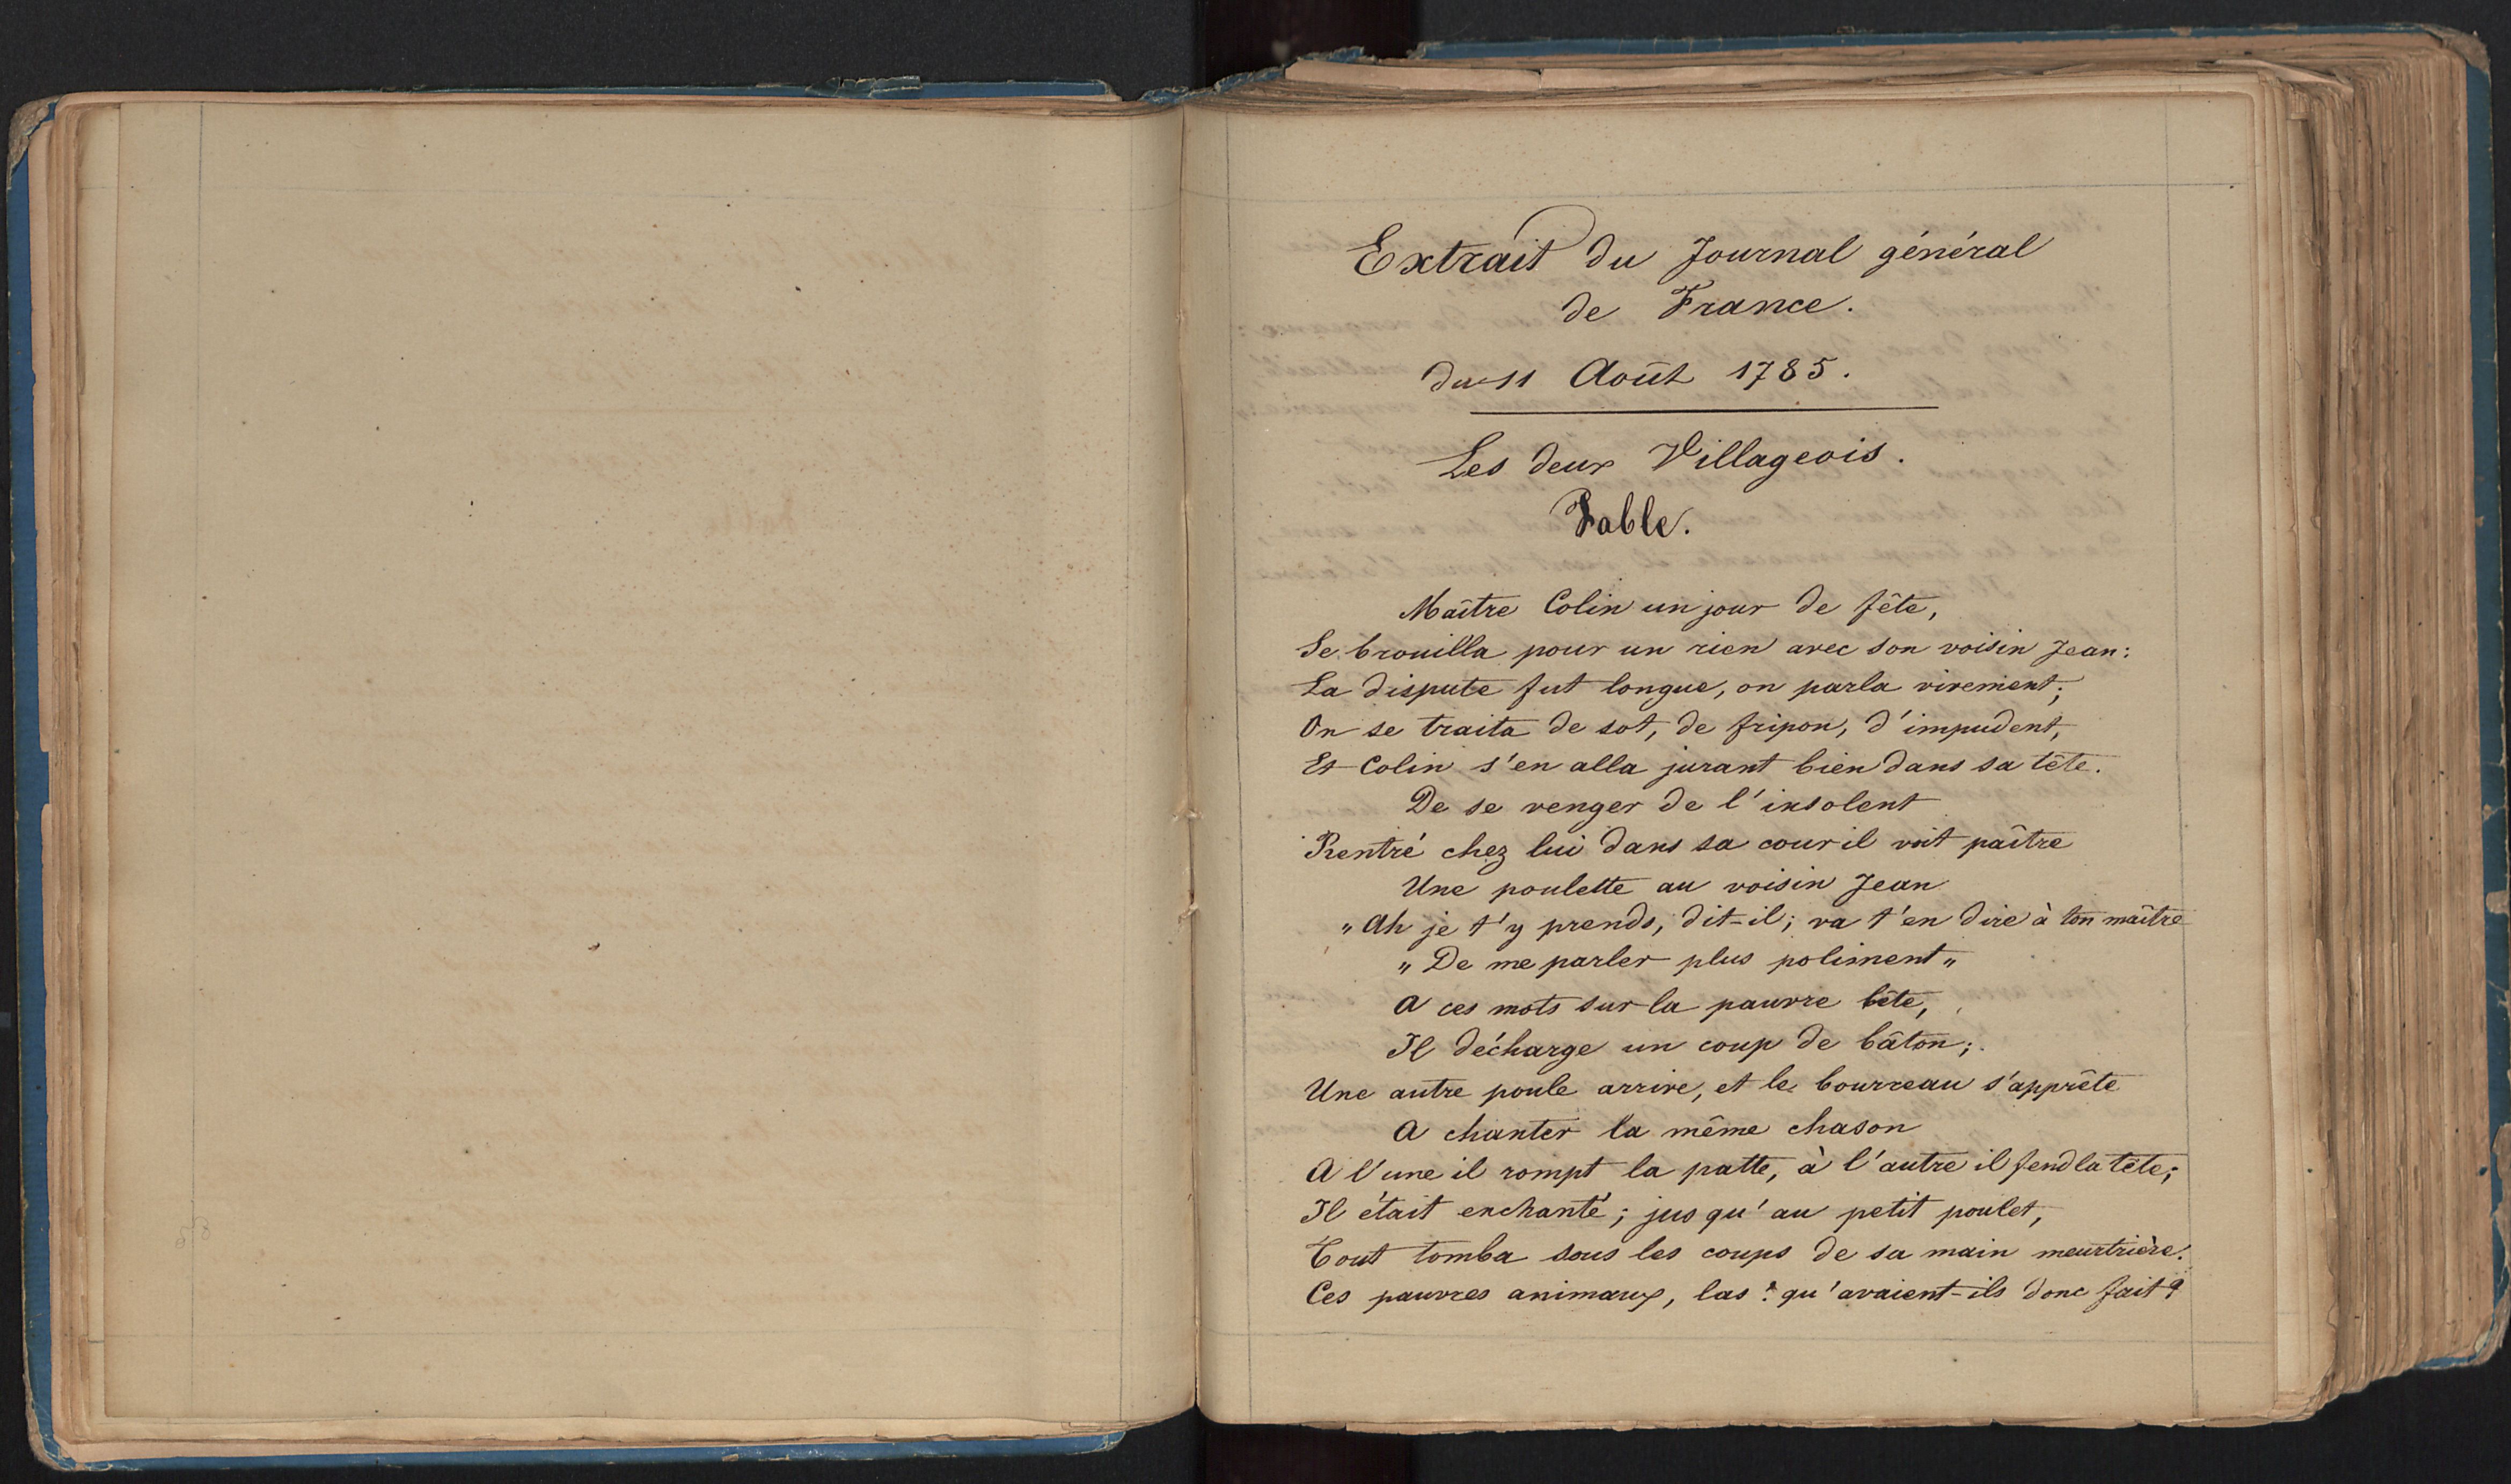 Extrait du Journal général
de France.
du 11 Août 1785.
Les deux Villageois.
Fable.
Maître Colin un jour de fête,
Se brouilla pour un rien avec son voisin Jean:
La dispute fut longue, on parla vivement;
On se traita de sot, de fripon, d'impudent,
Et Colin s'en alla jurant bien dans sa tête.
De se venger de l'insolent
Rentré chez lui dans sa cour il voit paître
Une poulette au voisin Jean
"Ah je t'y prends, dit-il; va t'en dire à ton maître
"De me parler plus poliment"
A ces mots sur la pauvre bête,
Il décharge un coup de bâton;
Une autre poule arrive, et le bourreau s'apprête
A chanter la même chason
A l'une il rompt la patte, à l'autre il fend la tête;
Il était enchanté; jusqu'au petit poulet,
Tout tomba sous les coups de sa main meurtrière.
Ces pauvres animaux, las! qu'avaient-ils donc fait?